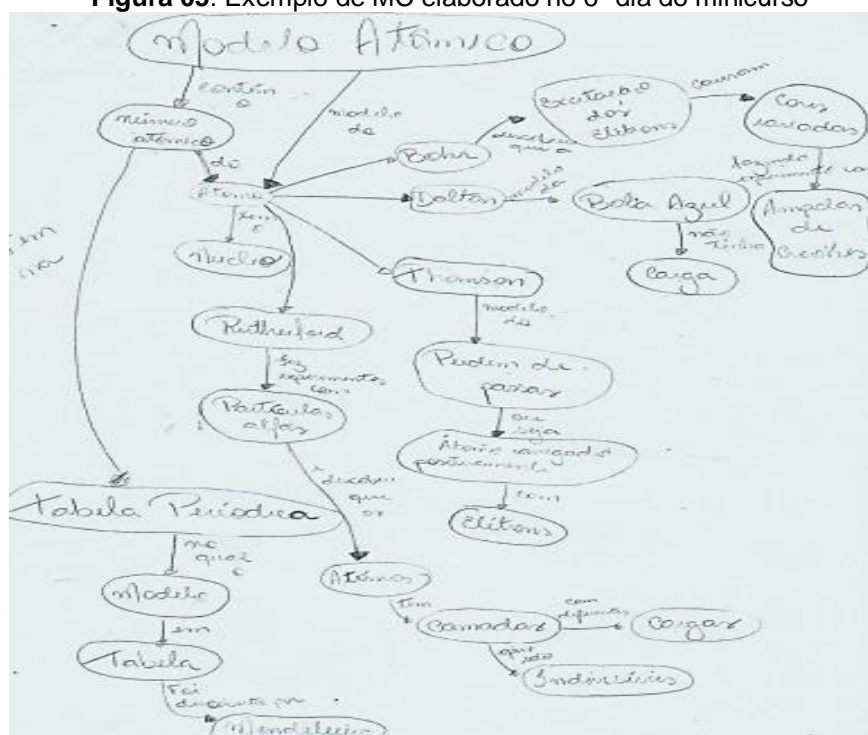 Figura 05: Exemplo de MC elaborado no 6º dia do minicurso
Modelo Atômico
contém
o
modelo
de
número
atômico
do
Átomo
tem
o
Núcleo
Bohr
descobriu
que a
Excitação
dos
Elétrons
causam
Cores
variadas
fazendo
experimento
Ampolas
de
Crookes
Dalton
modelo
da
Bola Azul
não
tinha
Carga
Thomson
modelo
do
Pudim de
passas
ou
seja
Átomo carregado
positivamente
com
Elétrons
Rutherford
fez
experimentos
com
Partículas
alfas
que
os
Átomos
tem
Camadas
com
diferentes
Cargas
que
são
Indivisíveis
tem
na
Tabela Periódica
no
qual
o
Modelo
em
Tabela
Foi
por